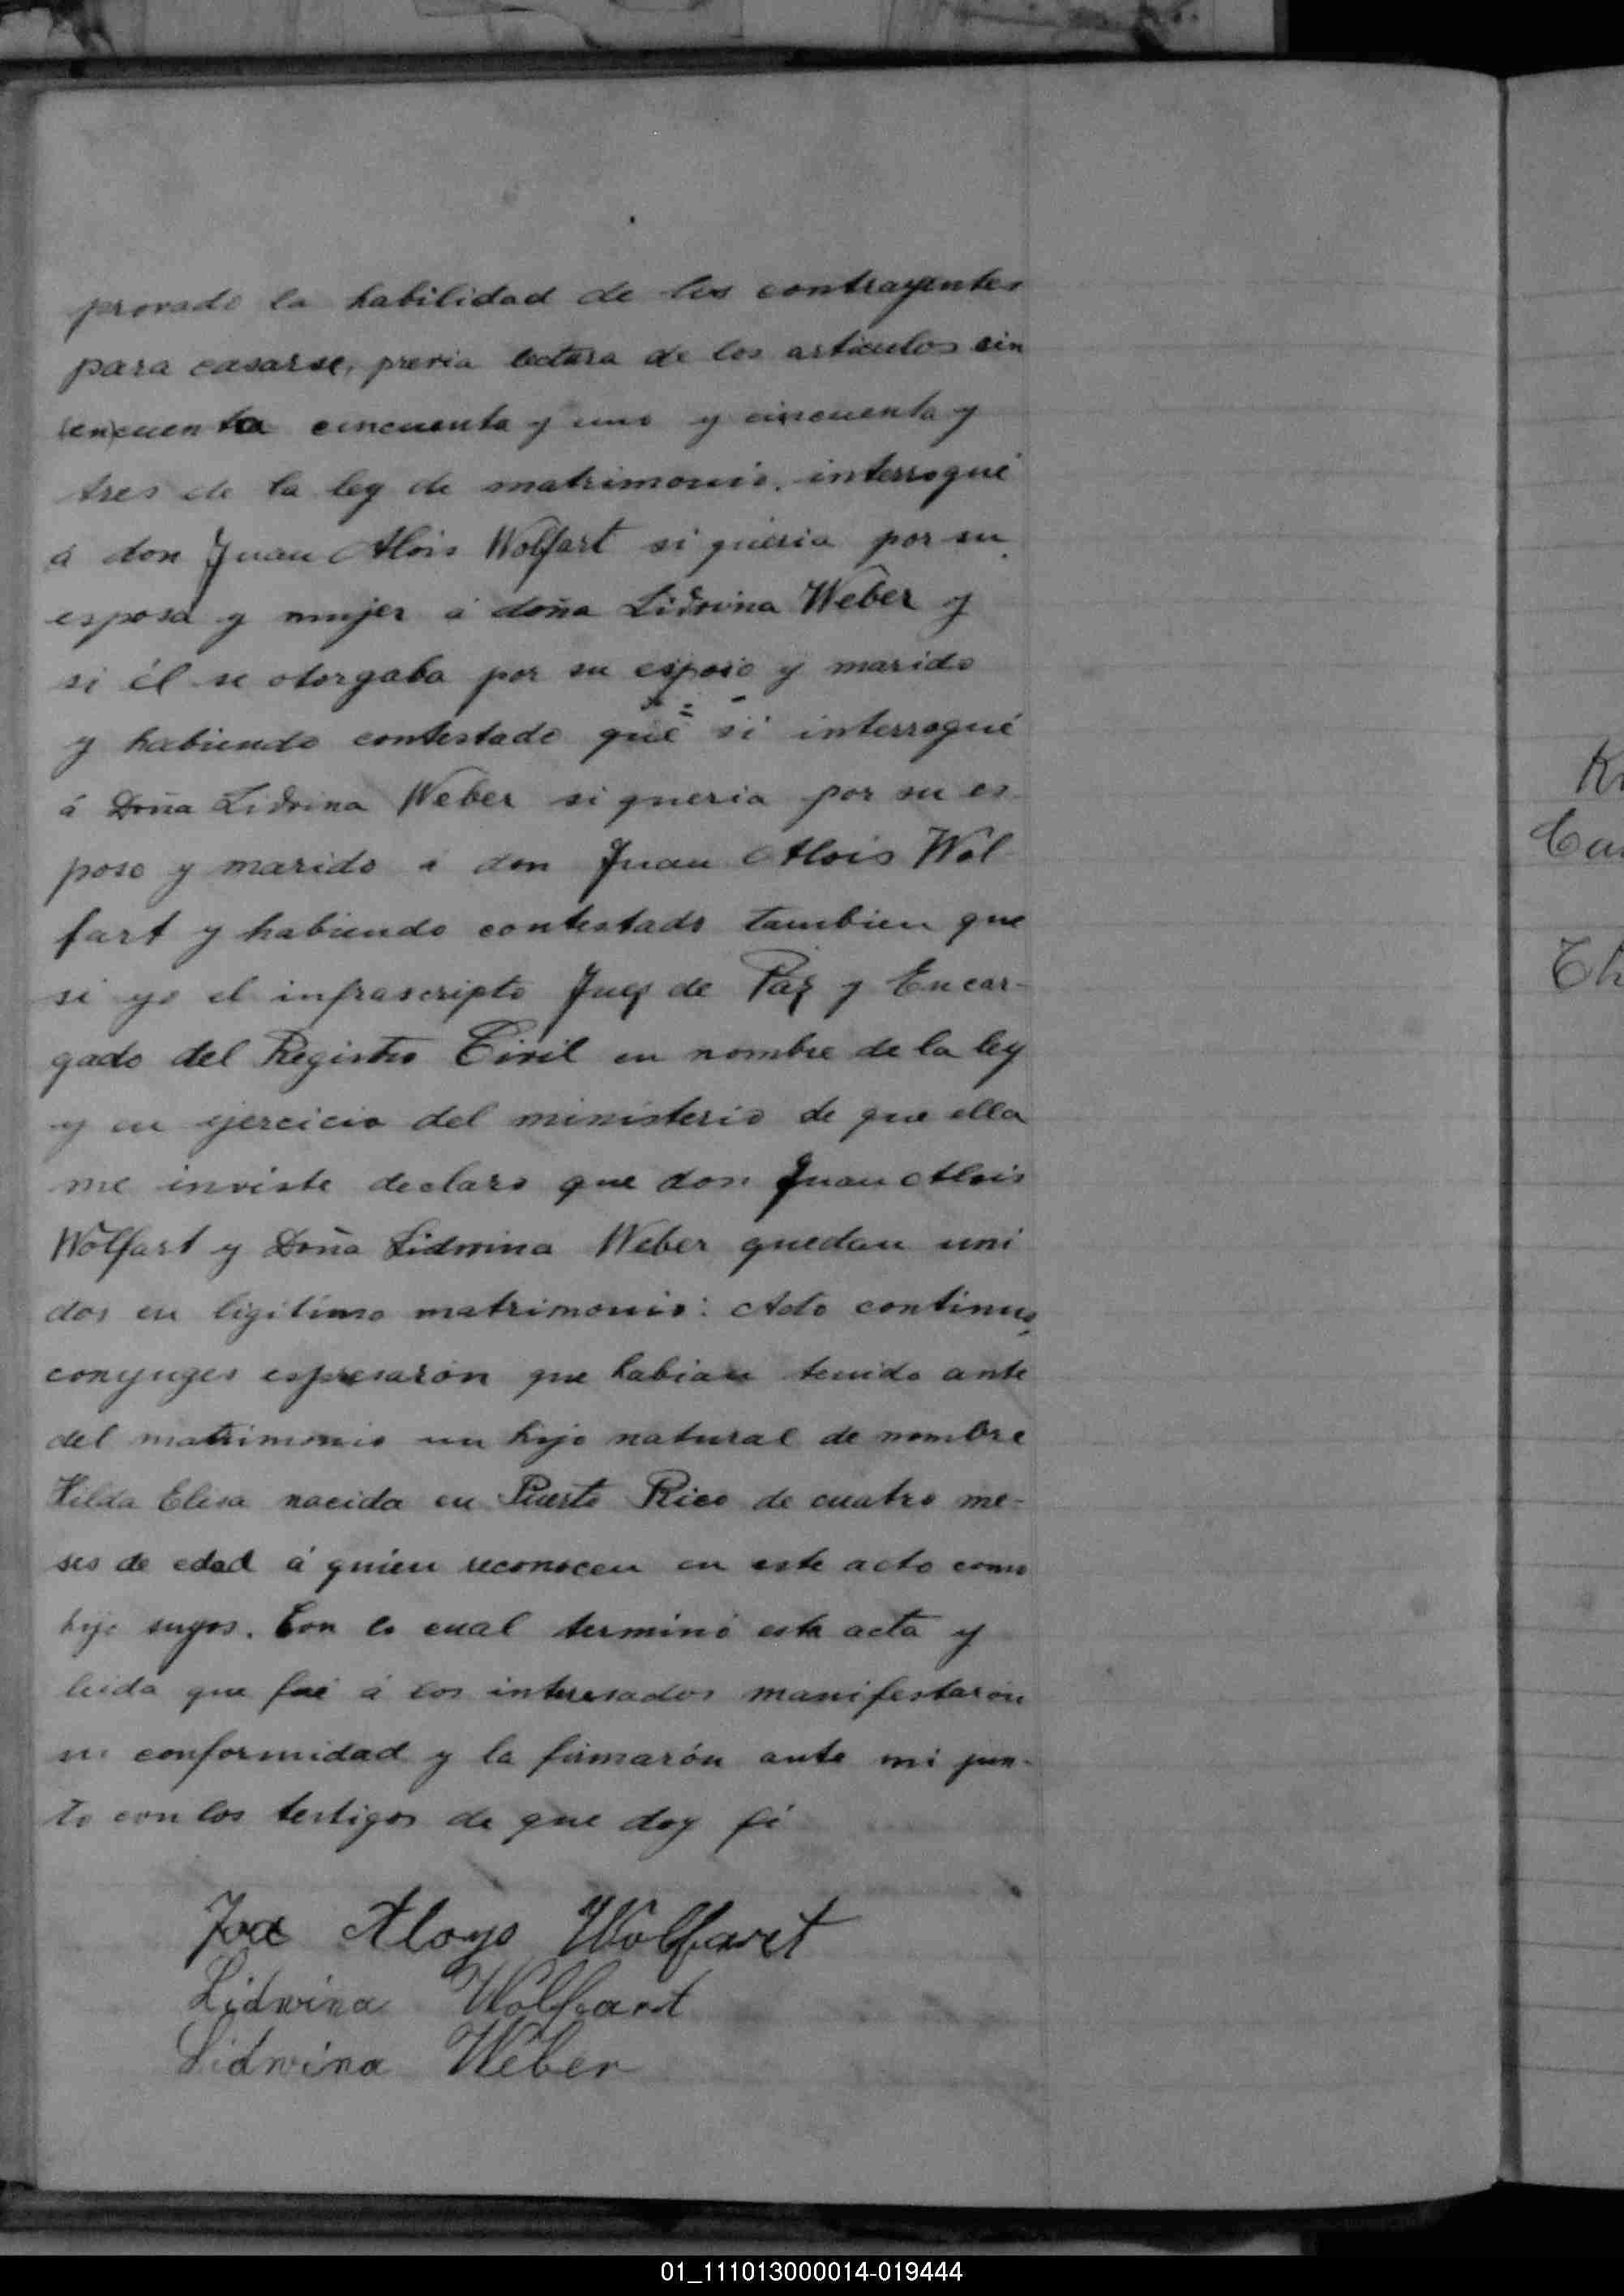 provado la habilidad de los contrayentes
para casarse, previa lectura de los articulos cin
cuenta cincuenta y uno y cincuenta y
tres de la ley de matrimonio. interrogué
á don Juan Alois Wolfart si queria por su
esposa y mujer á doña Lidwina Weber y
si él se otorgaba por su esposo y marido
y habiendo contestado que si interrogué
á Doña Lidwina Weber si queria por su es
poso y marido á don Juan Alois Wol
fart y habiendo contestado tambien que
si yo el infrascripto Juez de Paz y Encar-
gado del Registro Civil en nombre de la ley
y en ejercicio del ministerio de que ella
me inviste declaro que don Juan Alois
Wolfart y Doña Lidwina Weber quedan uni
dos en ligitimo matrimonio: Acto continuo,
conyuges espresarón que habian tenido ante
del matrimonio un hijo natural de nombre
Hilda Elisa nacida en Puerto Rico de cuatro me-
ses de edad á quien reconocen en este acto como
hijo suyos. Con lo cual terminó esta acta y
leida que fué á los interesados manifestarón
su conformidad y la firmarón ante mi jun-
to con los testigos de que doy fé
Aloys Wolfart
Lidwina Wolfart
Lidwina Weber
01_111013000014-019444